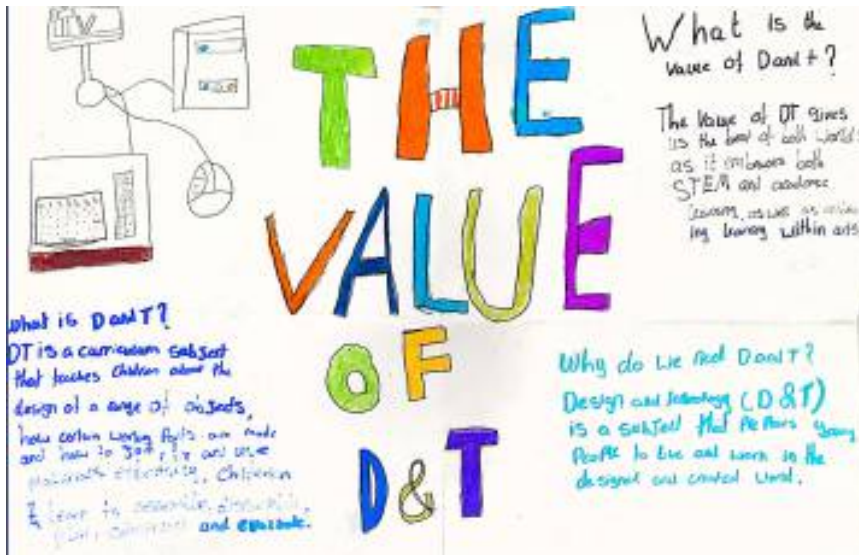 TV
THE
VALUE
OF
D&T
What is the
value of D and t?
The value of DT gives
us the best of both world
as it embraces both
STEM and academic
learning, as well as
ing learning within arts
What is D and T?
DT is a curriculum subject
that teaches children about the
design of a range of objects,
how certain working parts are made
and how to join, fix and use
materials electricity. Children
learn to assemble,
and evaluate.
Why do we need D and T?
Design and technology (D&T)
is a subject that young
People to live and work in the
designed and created world.